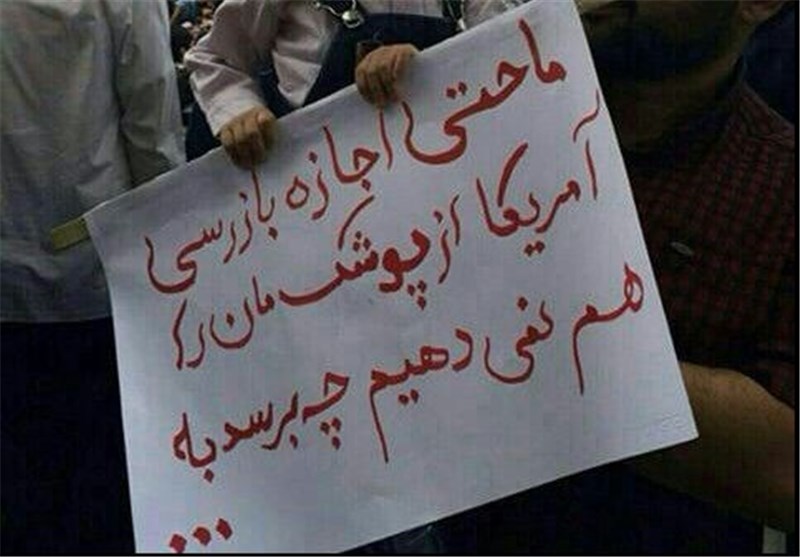 ما حتی اجازه بازرسی
آمریکا از پوشک مان را
هم نمی دهیم چه برسد به
...